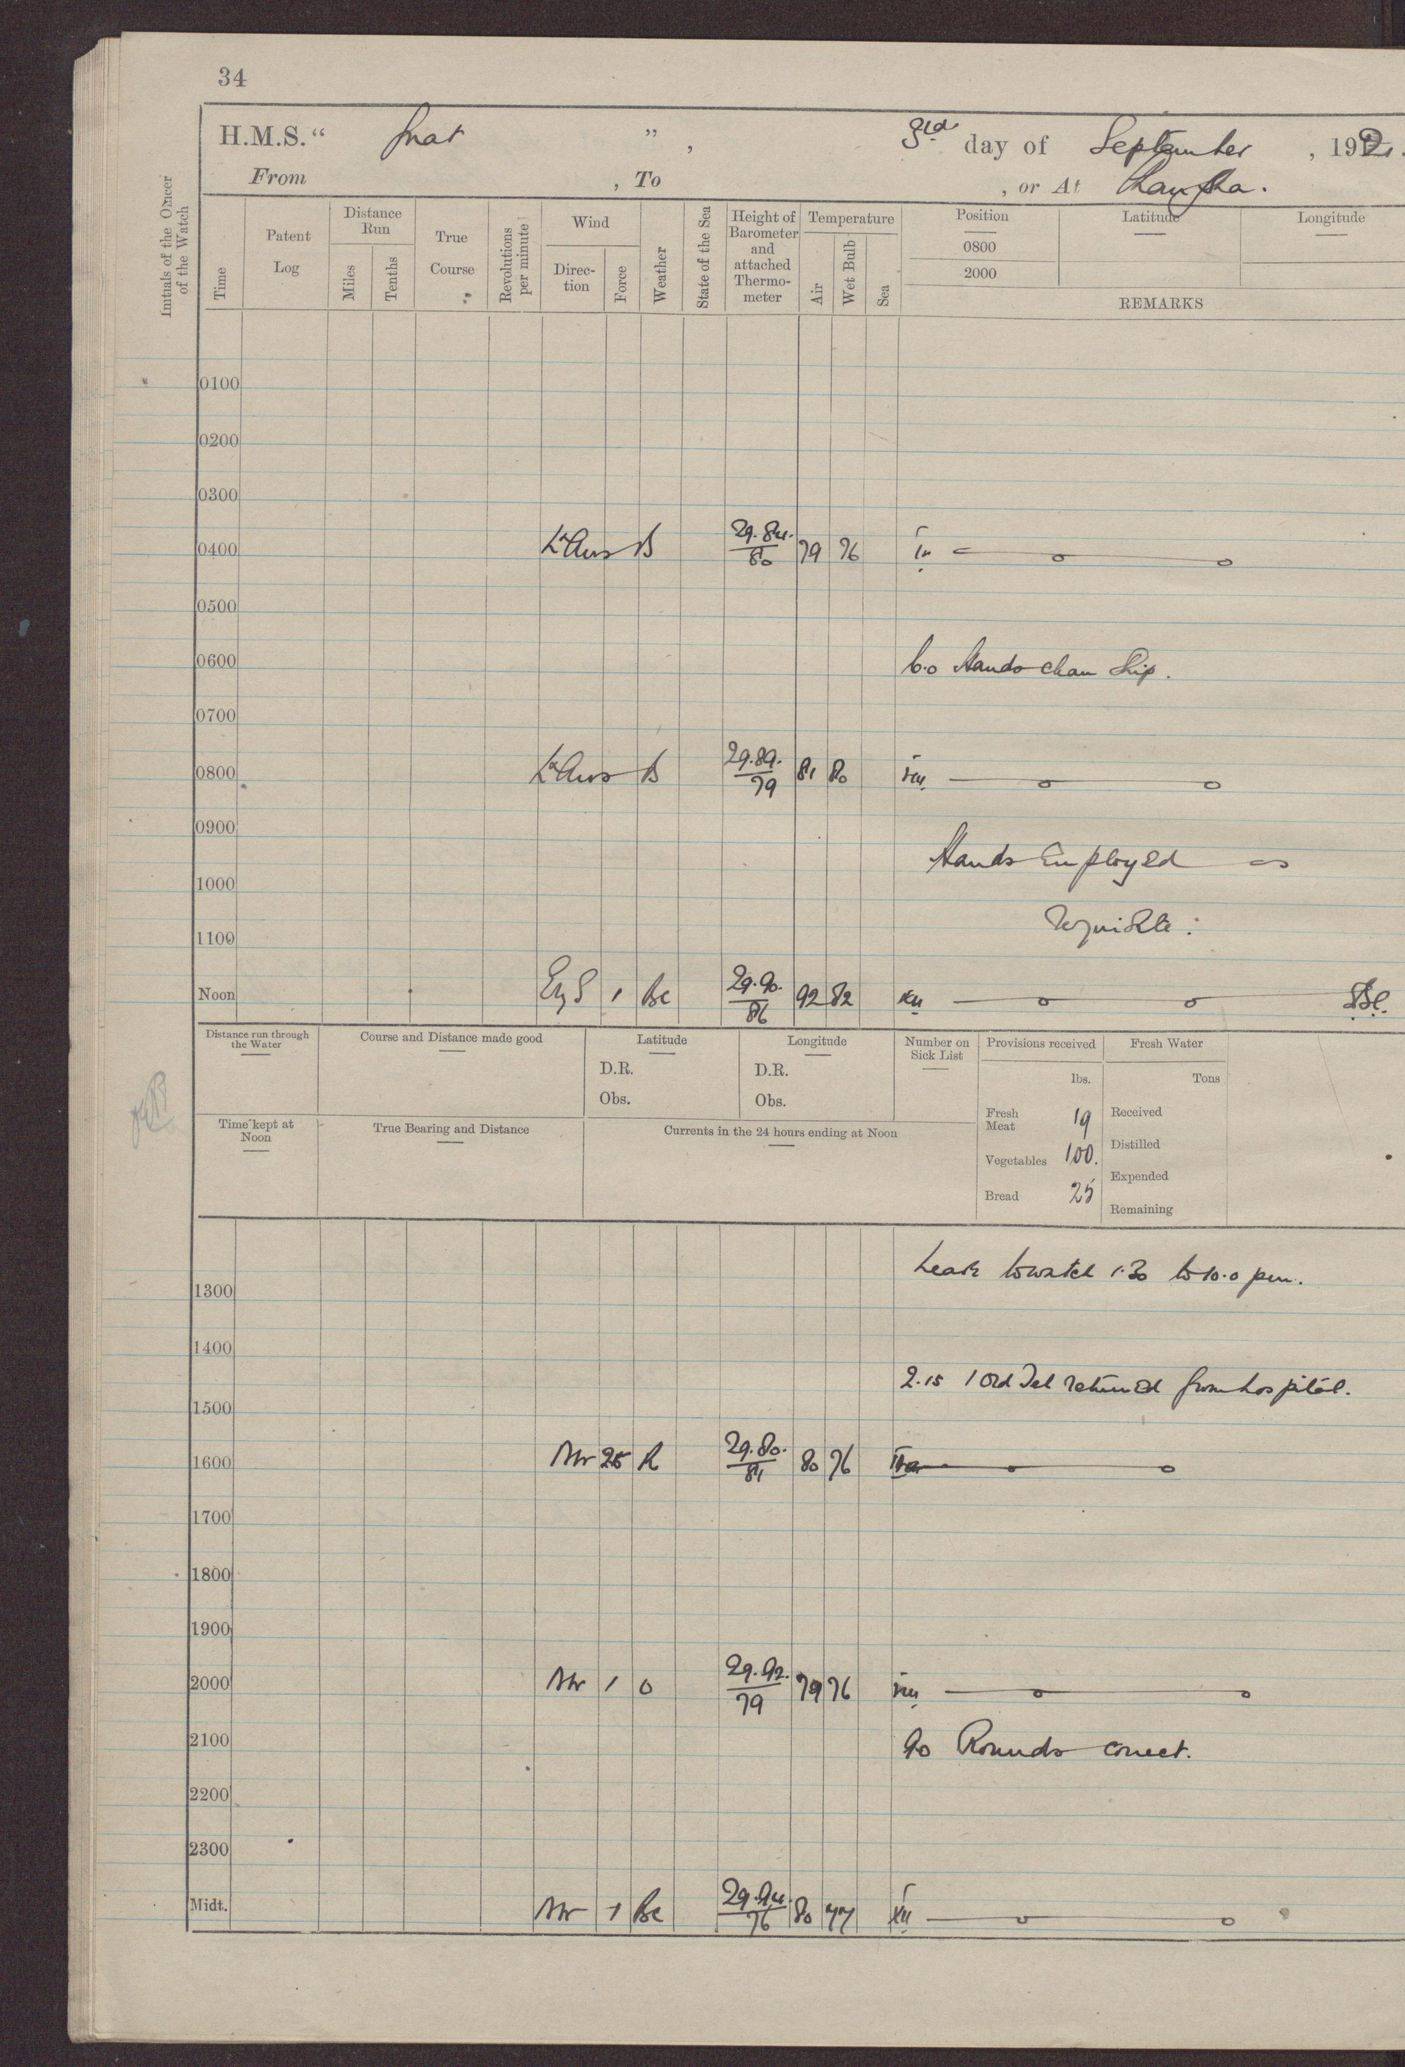 34
H.M.S. “ Gnat ”, 3rd day of September, 192
From , To , or At Changsha.
Initials of the Officer of the Watch
Time
Patent Log
Distance Run
Miles
Tenths
True Course
Revolutions per minute
Wind
Direction
Force
Weather
State of the Sea
Height of Barometer and attached Thermometer
Temperature
Air
Wet Bulb
Sea
Position
Latitude
Longitude
0800
2000
REMARKS
0100
0200
0300
0400 Lt Airs B 29.84. 80 79 76 IV
0500
0600 6.0 Hands clean Ship.
0700
0800 Lt Airs B 29.89. 79 81 80 VIII
0900 Hands Employed as
1000
1100 requisite.
Noon E by S 1 Bc 29.90. 86 92 82 XII
Distance run through the Water
Course and Distance made good
Latitude
D.R.
Obs.
Longitude
D.R.
Obs.
Number on Sick List
Provisions received
lbs.
Fresh Meat 19
Vegetables 100.
Bread 25
Fresh Water
Tons
Received
Distilled
Expended
Remaining
Time kept at Noon
True Bearing and Distance
Currents in the 24 hours ending at Noon
Leave to watch 1.30 to 10.0 pm.
1300
1400 2.15 1 Ord Tel returned from hospital.
1500
1600 NW R 29.80. 81 80 76
1700
1800
1900
2000 NW 1 O 29.92. 79 79 76 VIII
2100 9.0 Rounds correct.
2200
2300
Midt. NW 1 Bc 29.94. 76 80 77 XII